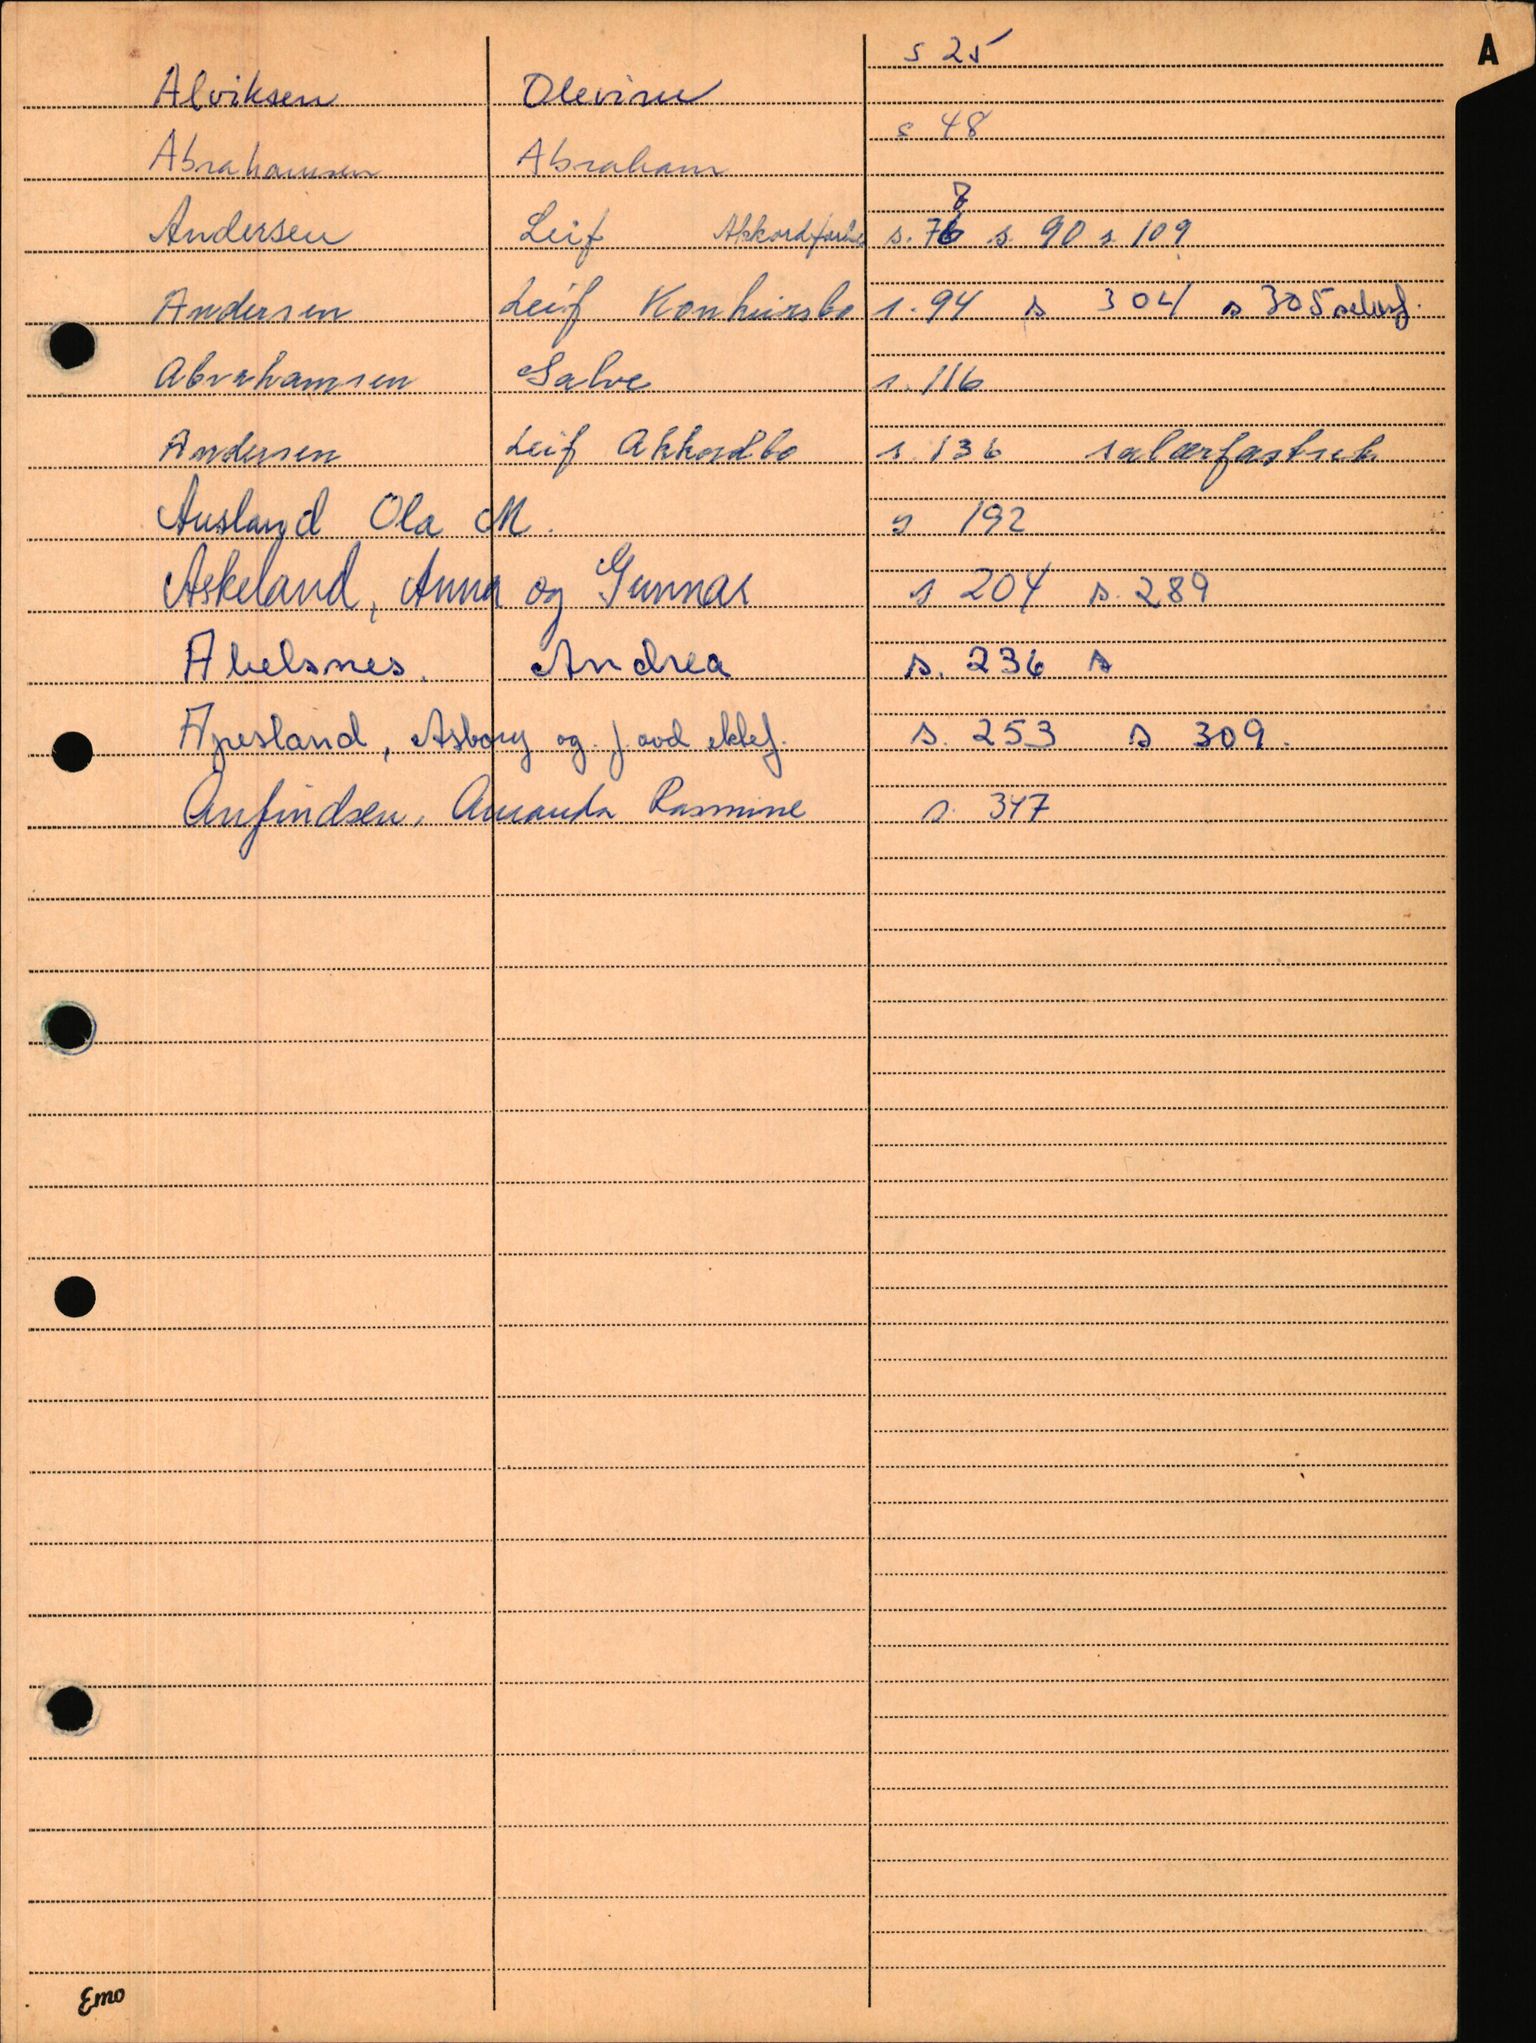 A
s 25
Alviksen Olevine
s 48
Abrahamsen Abraham
8
Andersen Leif s. 76 s. 90 s. 109
Andersen Leif Konkursbo s. 94 s 304 s 305
Abrahamsen Salve s. 116
Andersen Leif Akkordbo s. 136 salærfastsek
Ausland Ola M. s 192
Askeland, Anna og Gunnar s 204 s. 289
Abelsnes. Andrea s. 236 s
Asborg og s. 253 s 309.
Anfindsen, Amanda Rasmine s. 347
Emo